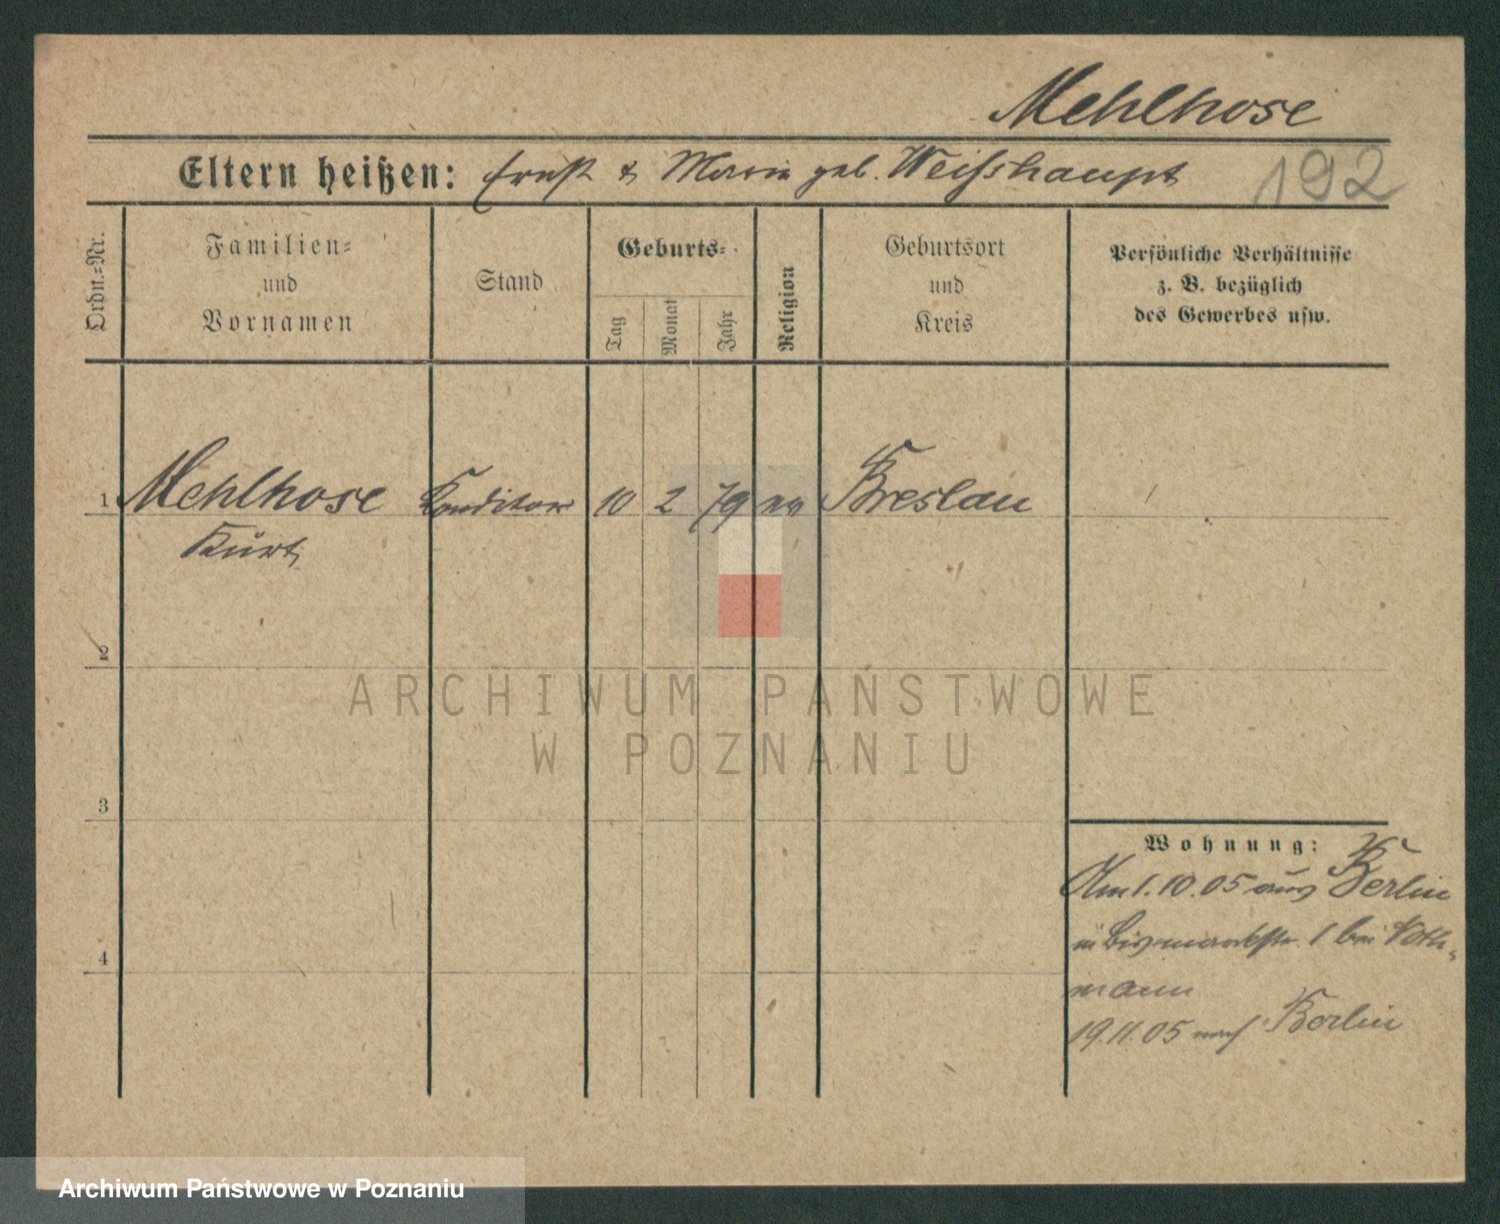 Mehlhose
Eltern heißen: Ernst & Marie geb. Weißhaupt 192
Ordn.=Nr.
Familien=
und
Vornamen
Stand
Geburts=
Tag
Monat
Jahr
Religion
Geburtsort
und
Kreis
Persönliche Verhältnisse
z. B. bezüglich
des Gewerbes usw.
1 Mehlhose Konditor 10 2 79 ev Breslau
Kurt
2
3
4
Wohnung:
Am 1.10.05 aus Berlin
in Bismarckstr. 1 bei
mann
19.11.05 nach Berlin
ARCHIWUM PAŃSTWOWE
W POZNANIU
Archiwum Państwowe w Poznaniu